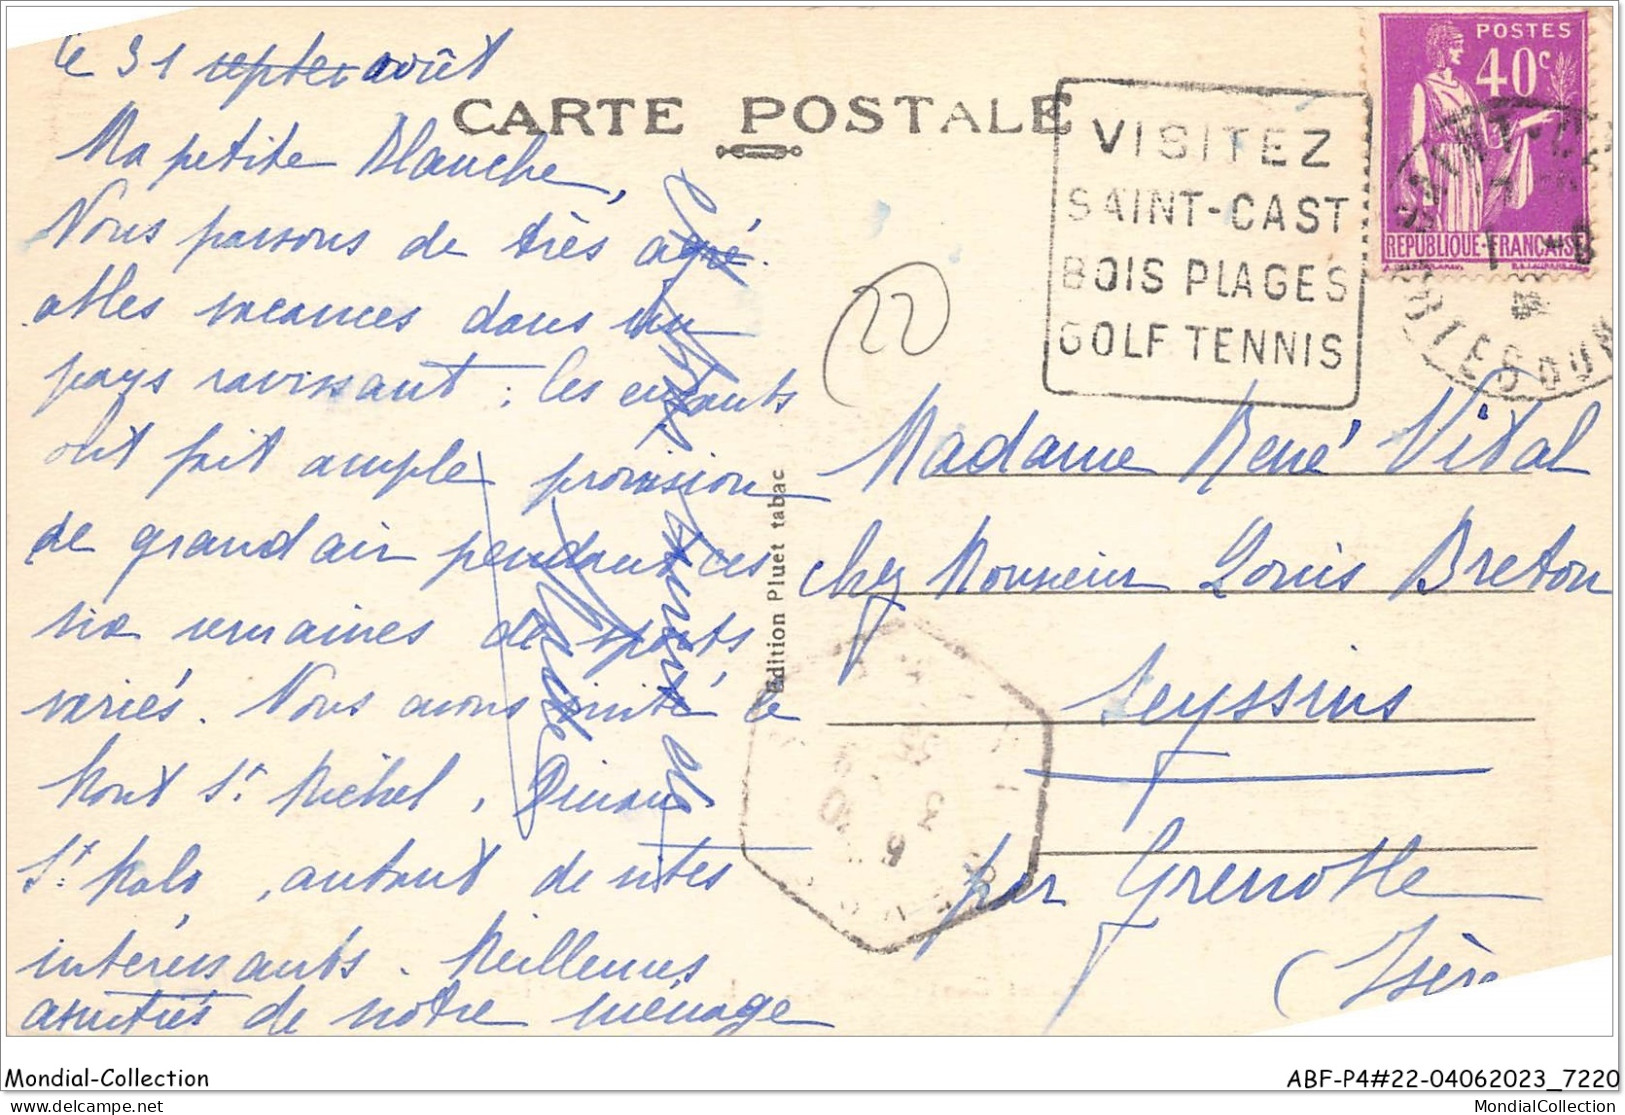 le 31 septe août
CARTE POSTALE
Ma petite Blanche,
Nous passons de très agré
ables vacances dans un
pays ravissant ; les enfants
ont fait ample provision
de grand air pendant ces
six semaines de sports
variés. Nous avons visité le
Mont St. Michel, Dinan
St. Malo, autant de sites
intéressants. Meilleures
amitiés de notre ménage
VISITEZ
SAINT-CAST
BOIS PLAGES
GOLF TENNIS
POSTES
40c
REPUBLIQUE-FRANCAISE
22
Edition Pluet tabac
Madame René Vital
chez Monsieur Louis Breton
Seyssins
par Grenoble
(Isère
Mondial-Collection
ABF-P4#22-04062023_7220
delcampe.net
MondialCollection